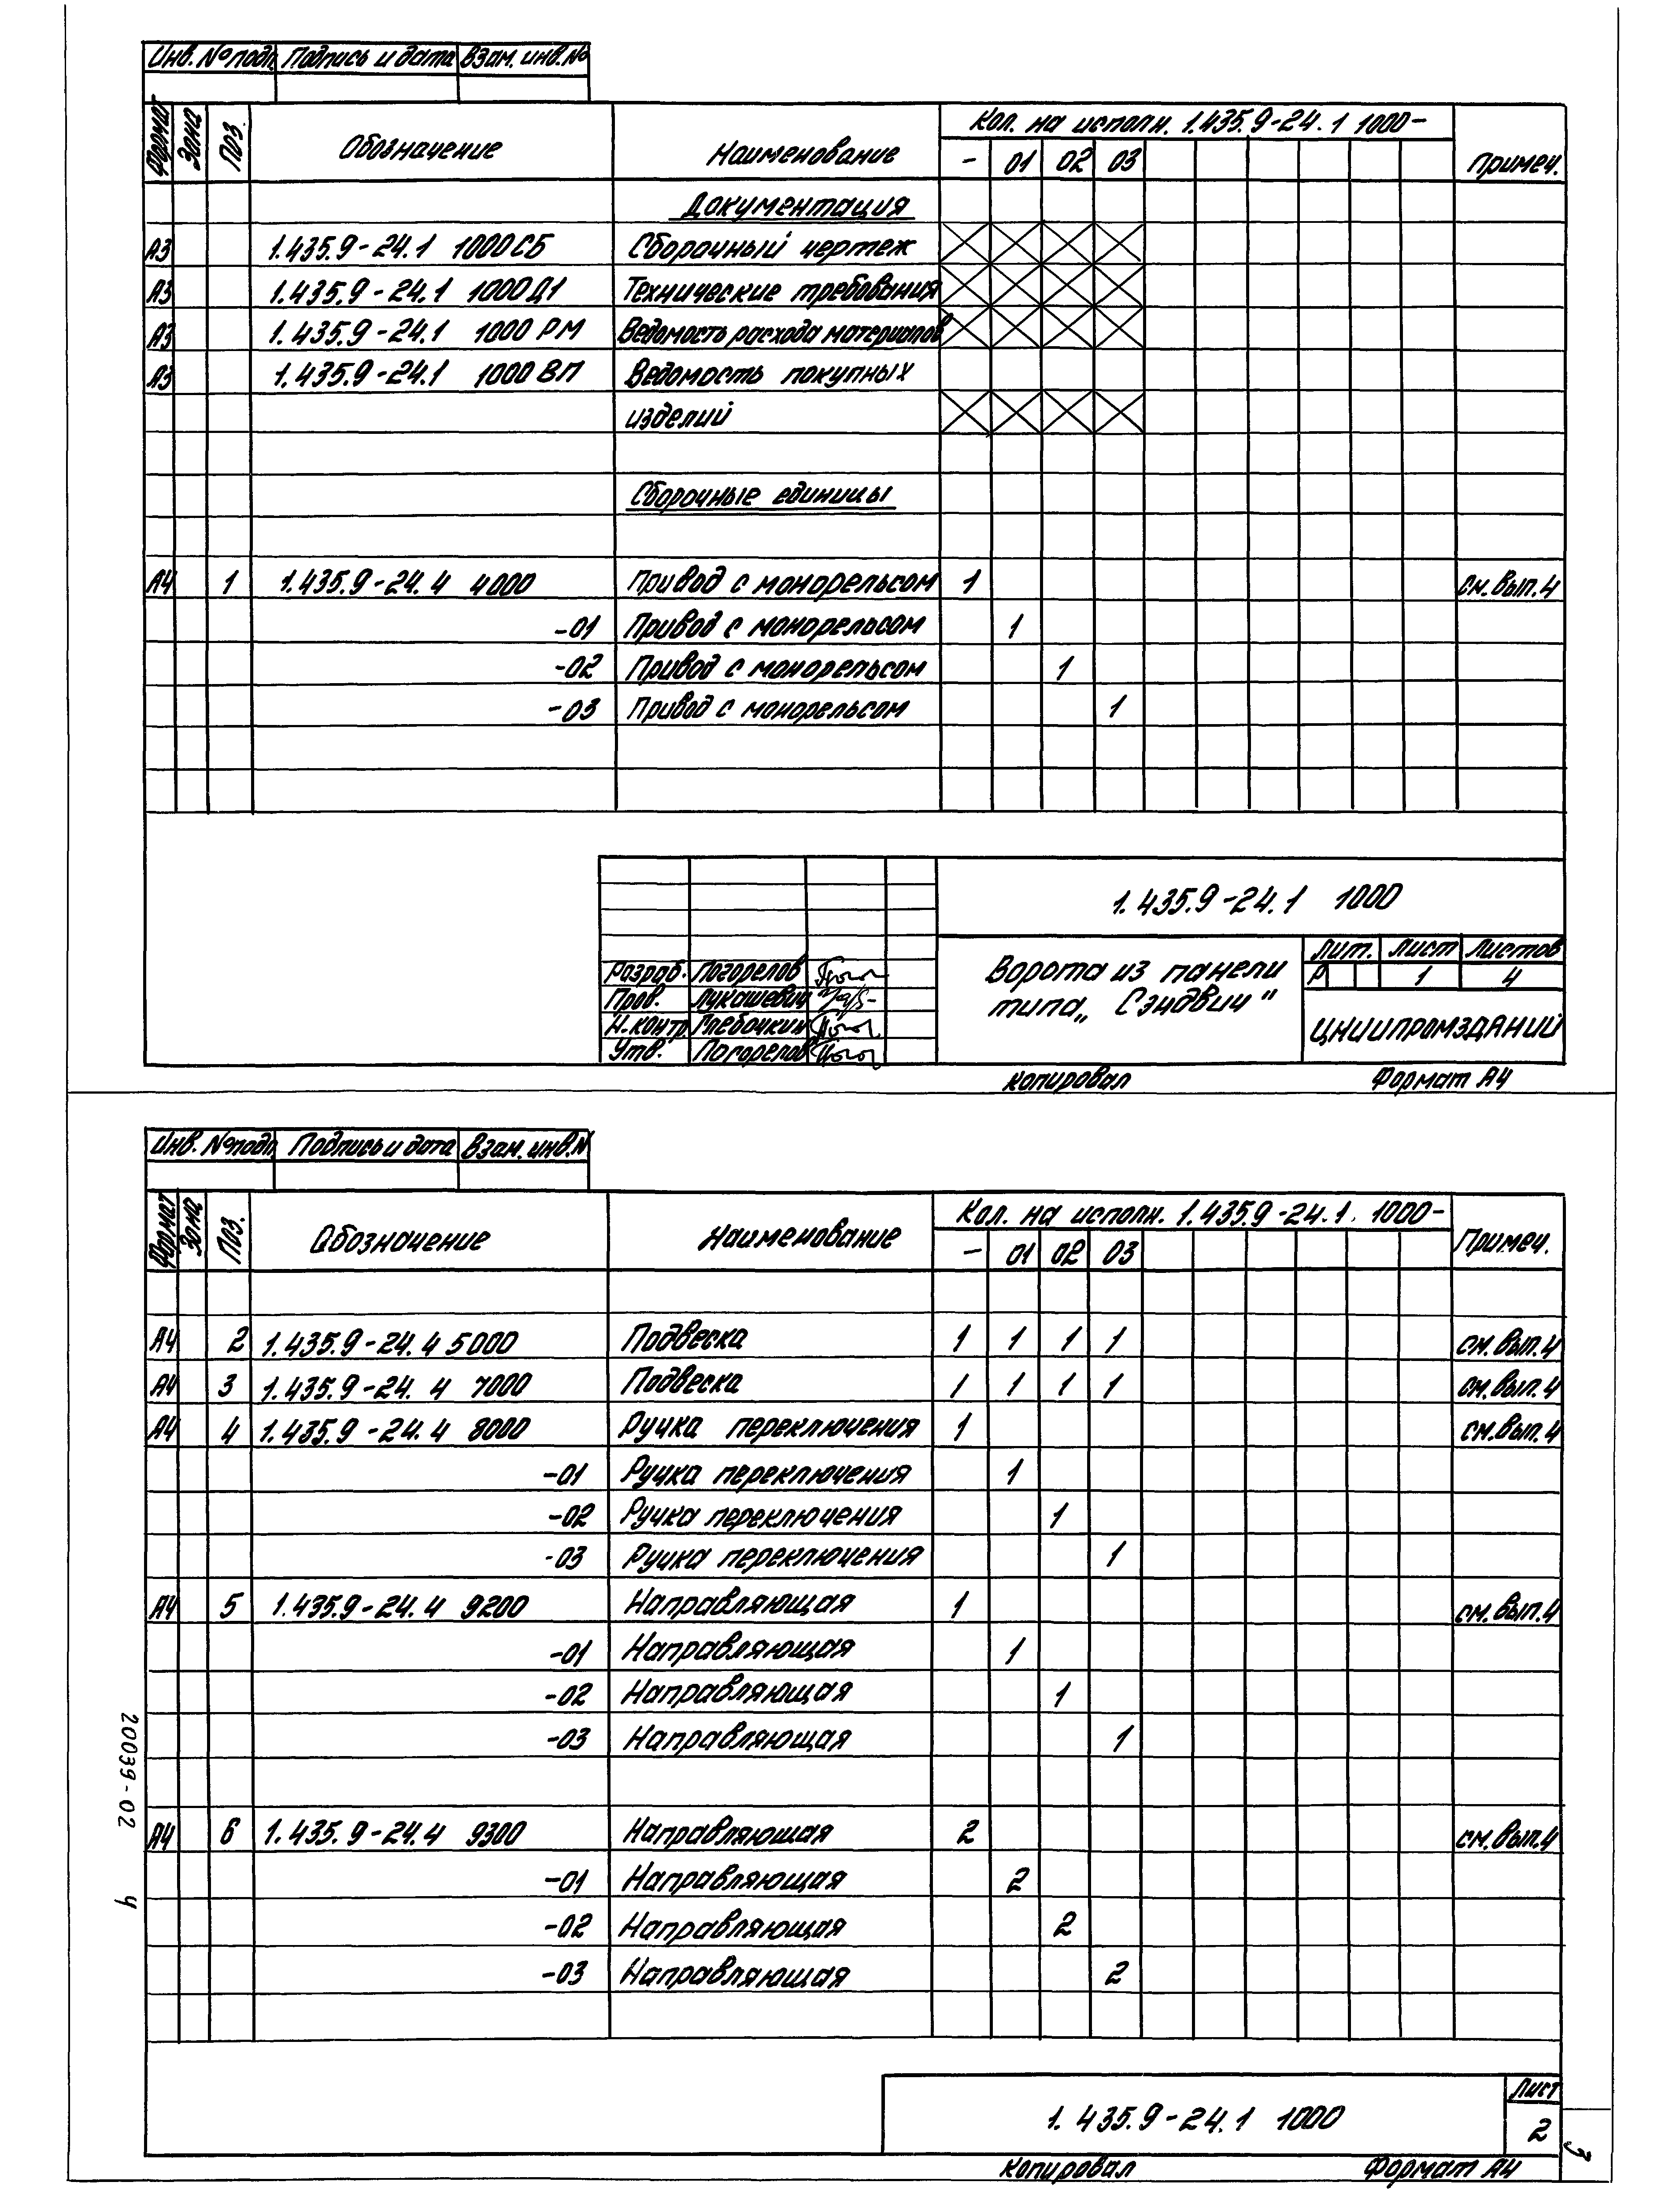 Инв. № подл. Подпись и дата Взам. инв. №
Формат Зона Поз. Обозначение Наименование Кол. на исполн. 1.435.9-24.1 1000- Примеч.
- 01 02 03
Документация
А3 1.435.9-24.1 1000СБ Сборочный чертеж
А3 1.435.9-24.1 1000Д1 Технические требования
А3 1.435.9-24.1 1000 РМ Ведомость расхода материалов
А3 1.435.9-24.1 1000 ВП Ведомость покупных
изделий
Сборочные единицы
А4 1 1.435.9-24.4 4000 Привод с монорельсом 1 см. вып. 4
-01 Привод с монорельсом 1
-02 Привод с монорельсом 1
-03 Привод с монорельсом 1
1.435.9-24.1 1000
Разраб. Погорелов
Пров. Лукашевич
Н.контр. Глебочкин
Утв. Погорелов
Ворота из панели
типа „Сэндвич"
Лит. Лист Листов
Р 1 4
ЦНИИПРОМЗДАНИЙ
Копировал Формат А4
Инв. № подл. Подпись и дата Взам. инв. №
Формат Зона Поз. Обозначение Наименование Кол. на исполн. 1.435.9-24.1. 1000- Примеч.
- 01 02 03
А4 2 1.435.9-24.4 5000 Подвеска 1 1 1 1 см. вып. 4
А4 3 1.435.9-24.4 7000 Подвеска 1 1 1 1 см. вып. 4
А4 4 1.435.9-24.4 8000 Ручка переключения 1 см. вып. 4
-01 Ручка переключения 1
-02 Ручка переключения 1
-03 Ручка переключения 1
А4 5 1.435.9-24.4 9200 Направляющая 1 см. вып. 4
-01 Направляющая 1
-02 Направляющая 1
-03 Направляющая 1
А4 6 1.435.9-24.4 9300 Направляющая 2 см. вып. 4
-01 Направляющая 2
-02 Направляющая 2
-03 Направляющая 2
20039-02 4
1.435.9-24.1 1000
Лист
2
Копировал Формат А4
3